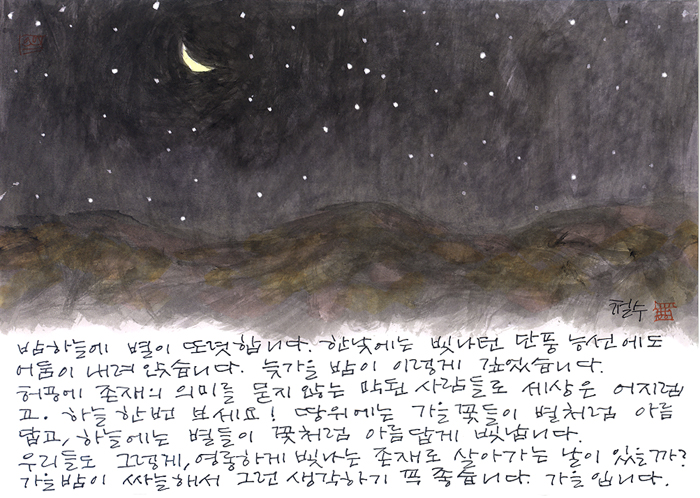 철수
밤하늘에 별이 또렷합니다. 한낮에는 빛나던 단풍 능선에도
어둠이 내려 왔습니다. 늦가을 밤이 이렇게 깊었습니다.
허공에 존재의 의미를 묻지 않는 막된 사람들로 세상은 어지럽
고. 하늘 한번 보세요! 땅위에는 가을꽃들이 별처럼 아름
답고, 하늘에는 별들이 꽃처럼 아름답게 빛납니다.
우리들도 그렇게, 영롱하게 빛나는 존재로 살아가는 날이 있을까?
가을밤이 싸늘해서 그런 생각하기 꼭 좋습니다. 가을입니다.